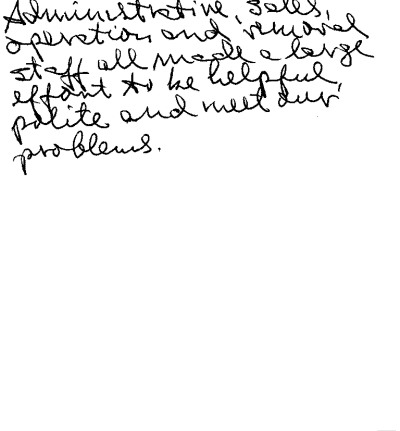 Administrative, sales,
operation and removal
staff all made a large
effort to be helpful,
polite and meet our
problems.